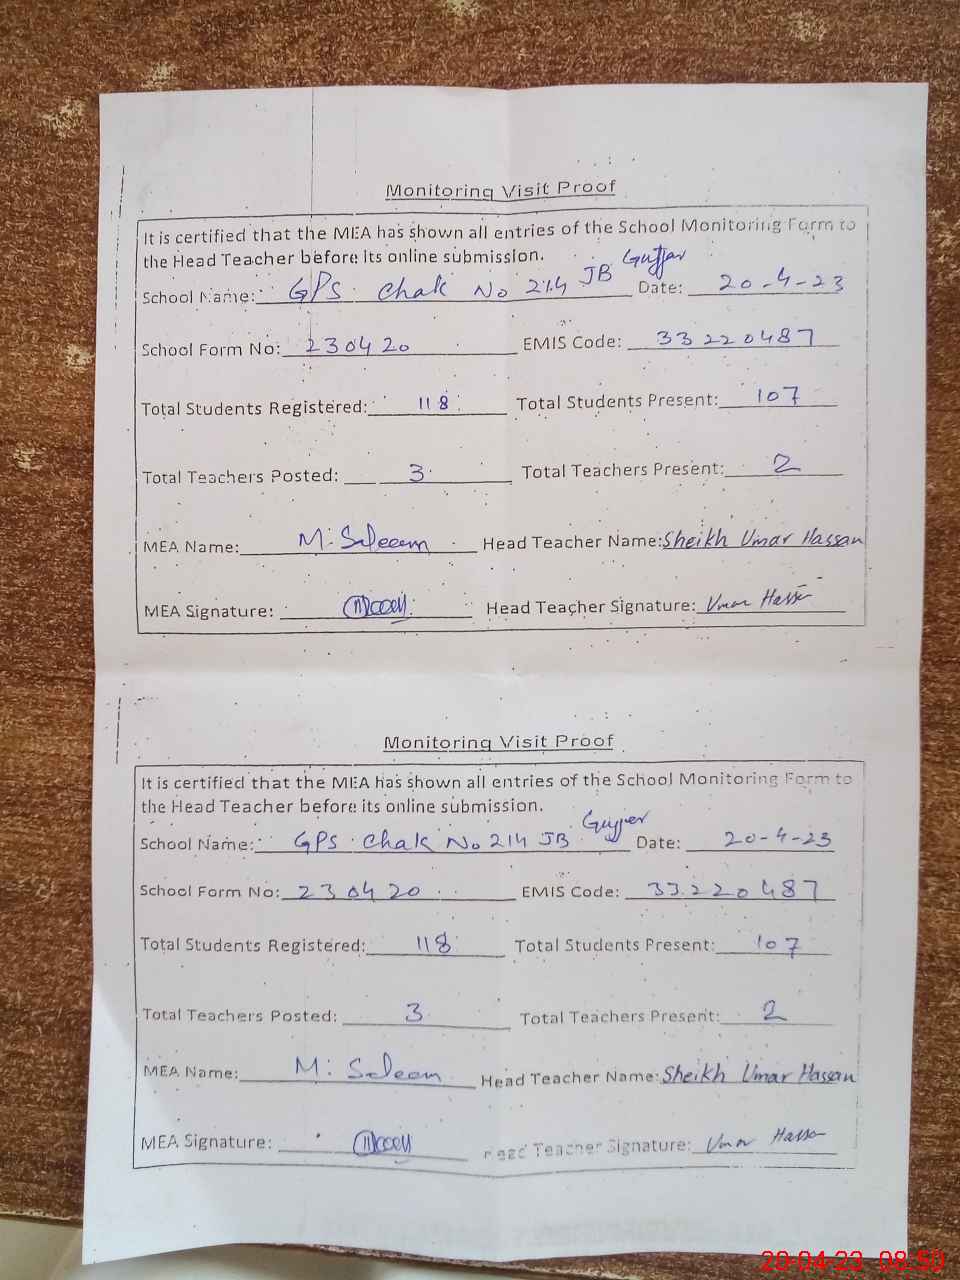 Monitoring Visit Proof
It is certified that the MEA has shown all entries of the School Monitoring Form to
the Head Teacher before its online submission.
School Name: GPS Chak No 214 JB Gujjar Date: 20-4-23
School Form No: 230420 EMIS Code: 33220487
Total Students Registered: 118 Total Students Present: 107
Total Teachers Posted: 3 Total Teachers Present: 2
MEA Name: M. Saleem Head Teacher Name: Sheikh Umar Hassan
MEA Signature: Head Teacher Signature: Umar Hassan
Monitoring Visit Proof
It is certified that the MEA has shown all entries of the School Monitoring Form to
the Head Teacher before its online submission.
School Name: GPS Chak No 214 JB Gujjar Date: 20-4-23
School Form No: 230420 EMIS Code: 33220487
Total Students Registered: 118 Total Students Present: 107
Total Teachers Posted: 3 Total Teachers Present: 2
MEA Name: M. Saleem Head Teacher Name: Sheikh Umar Hassan
MEA Signature: Head Teacher Signature: Umar Hassan
20-04-23 08:50